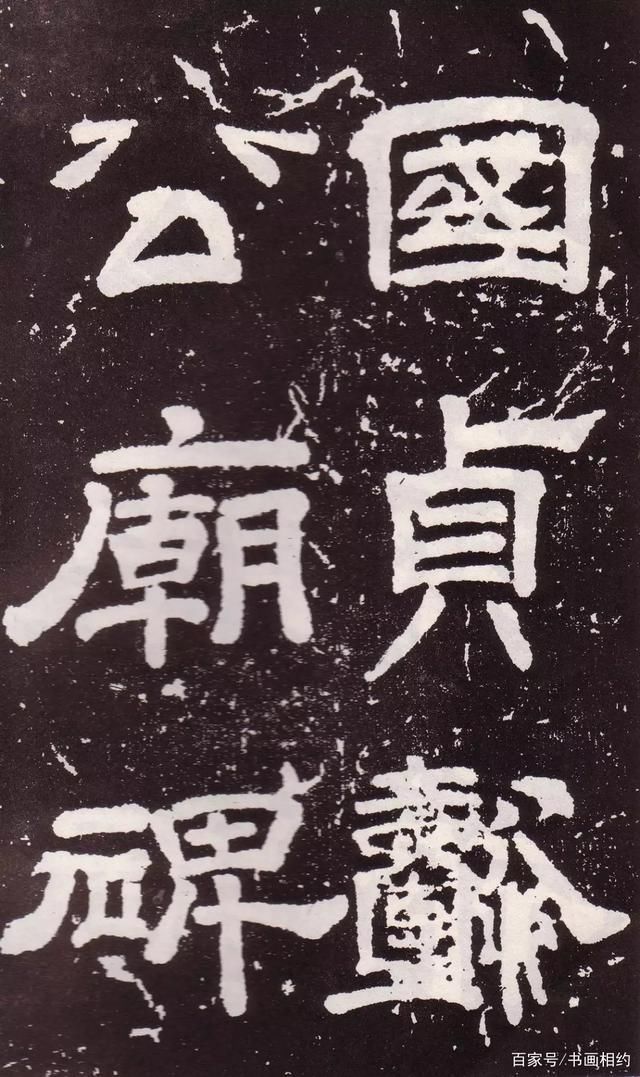 國貞
公廟碑
百家号/书画相约